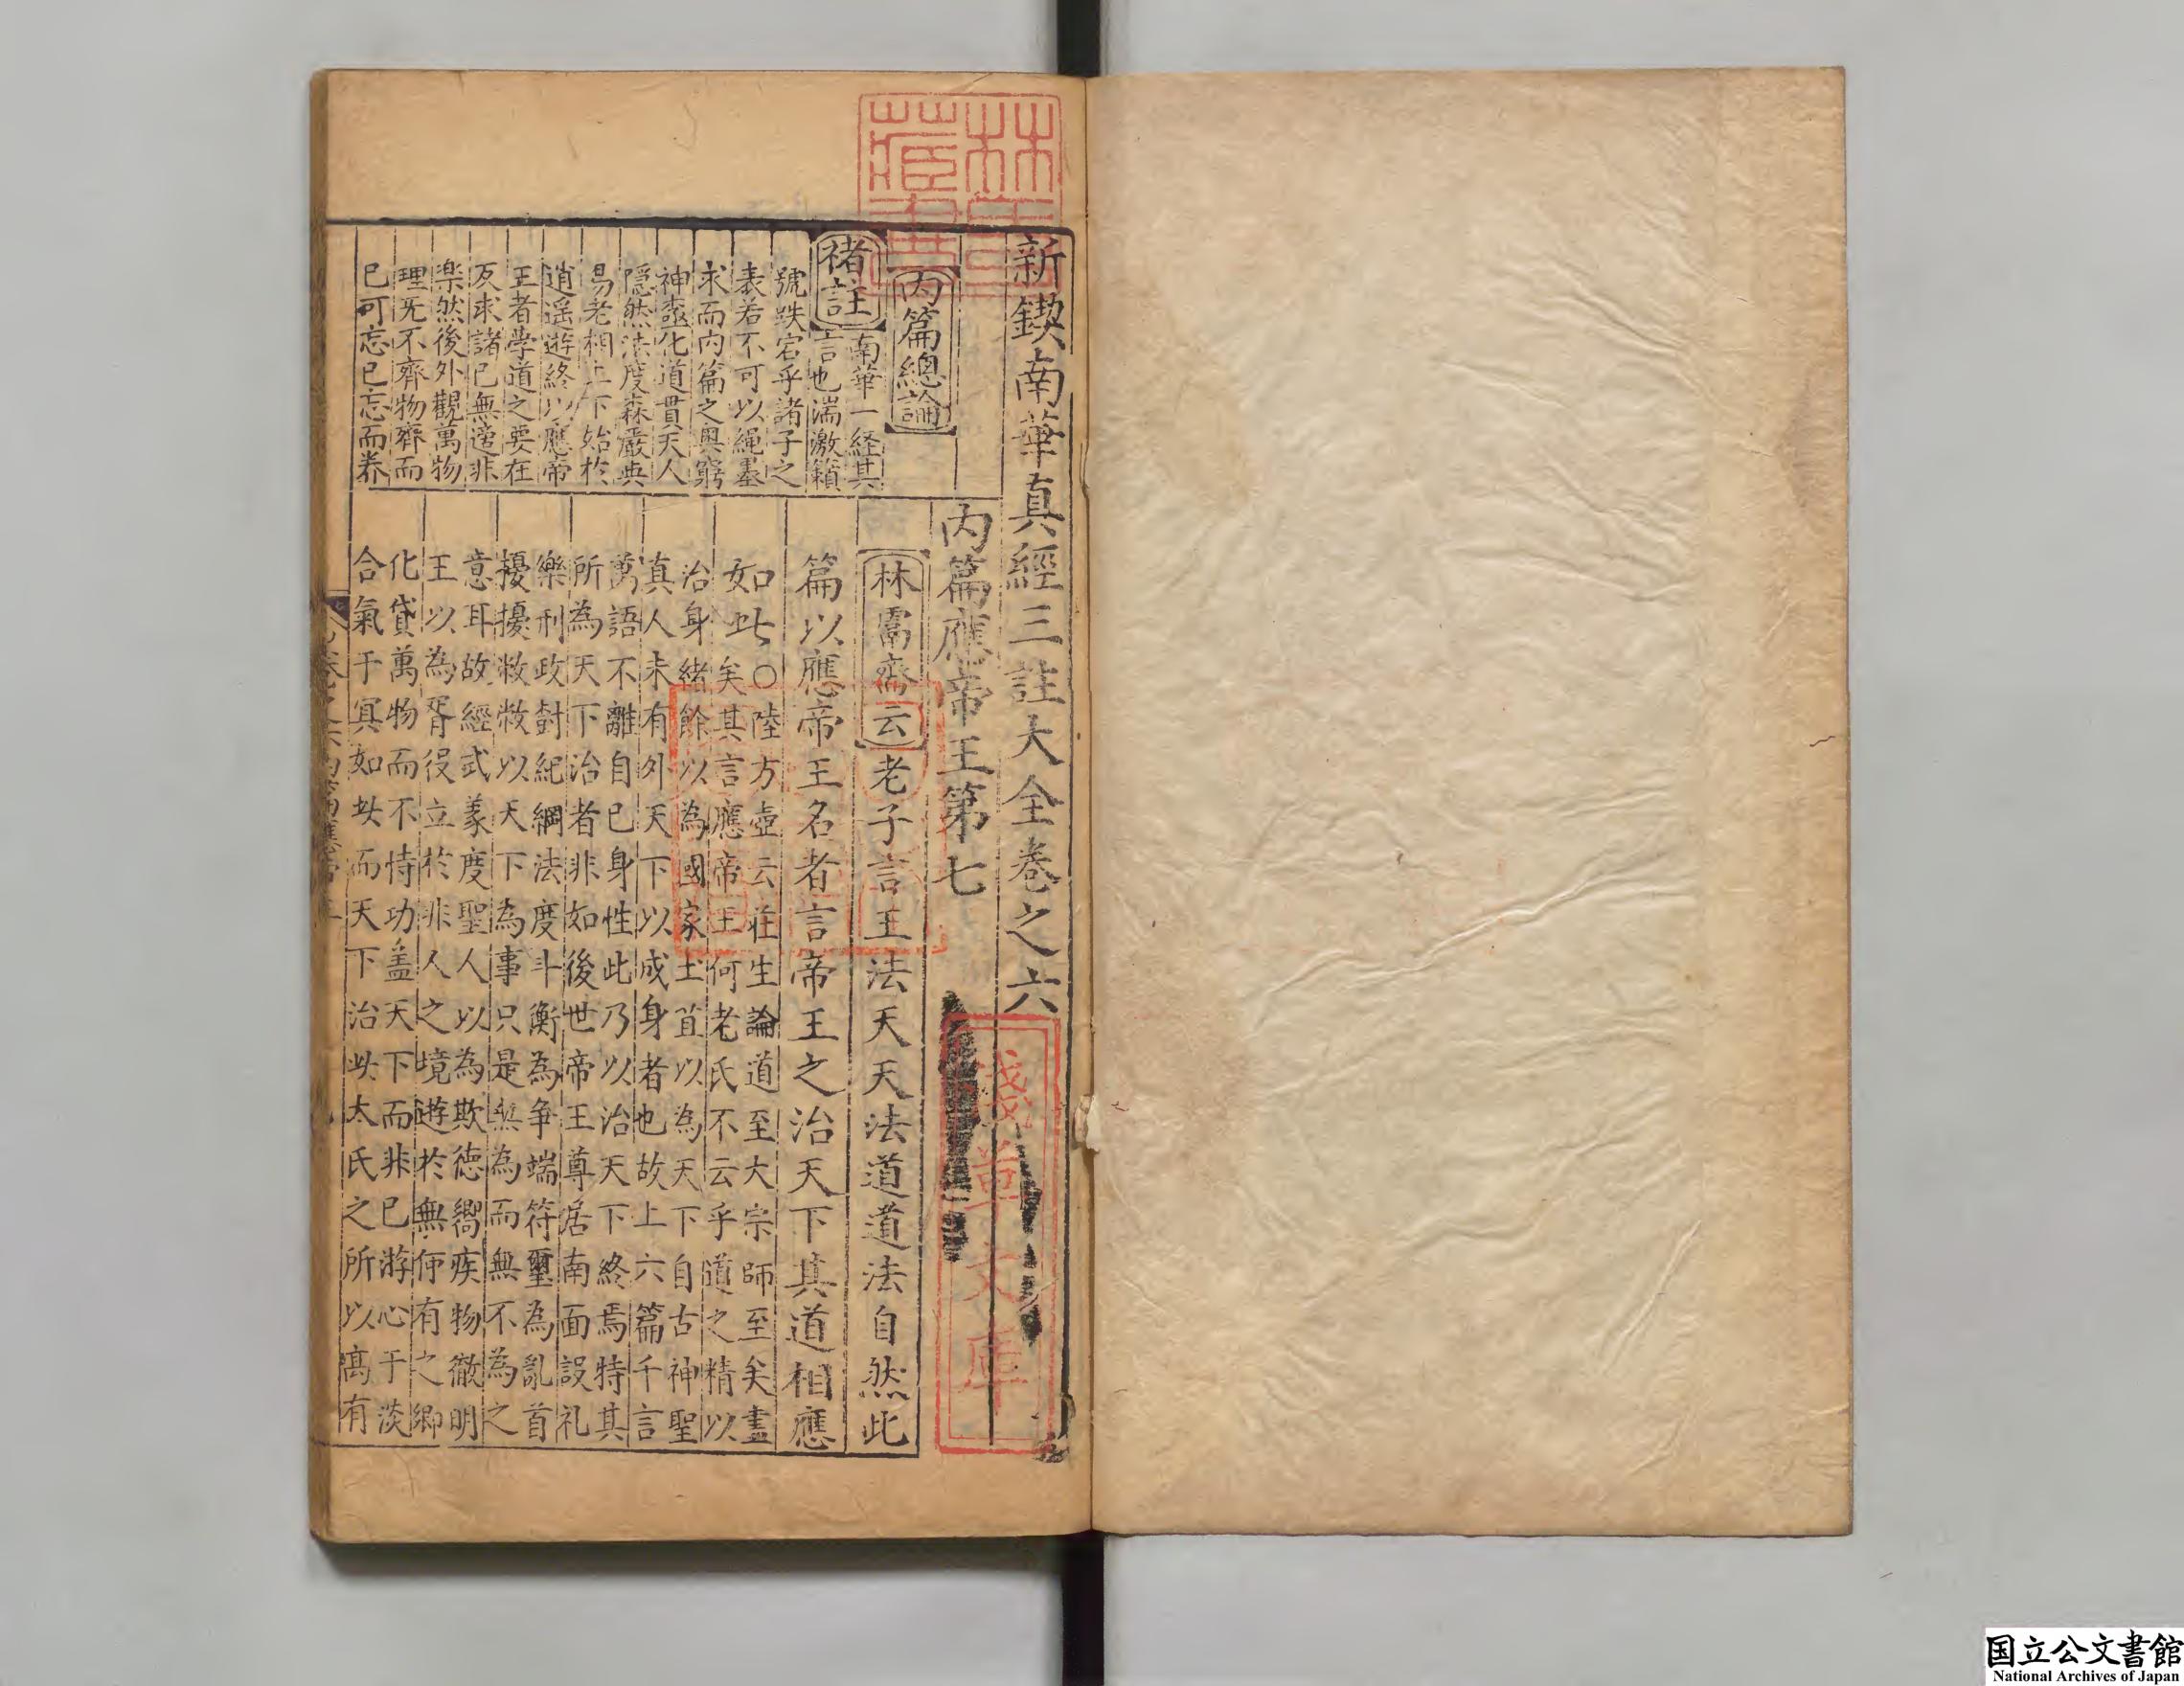 新鍥南華真經三註大全卷之六
內篇總論
褚註
南華一経其
言也湍激籟
號跌宕乎諸子之
表若不可以繩墨
求而內篇之奧窮
神䆳化道貫天人
隱然法度森嚴與
易老相上下始於
逍遥遊終以應帝
王者學道之要在
反求諸己無適非
楽然後外觀萬物
理旡不齊物齊而
已可忘已忘而養
內篇應帝王第七
林鬳齋云老子言王法天天法道道法自然此
篇以應帝王名者言帝王之治天下其道相應
如此〇陸方壺云莊生論道至大宗師至矣盡
矣其言應帝王何老氏不云乎道之精以
治身緒餘以為國家土苴以為天下自古神聖
真人未有外天下以成身者也故上六篇千言
萬語不離自已身性此乃以治天下終焉特其
所為天下治者非如後世帝王尊居南面設礼
樂刑政對紀綱法度斗衡為争端符璽為亂首
擾擾敝敝以天下為事只是無為而無不為之
意耳故經式義度聖人以為欺德嚮疾物徹明
王以為胥役立於非人之境遊於無何有之鄉
化貸萬物而不恃功盖天下而非已游心于淡
合氣于冥如此而天下治此太氏之所以高有
林氏
藏書
淺草文庫
国立公文書館
National Archives of Japan